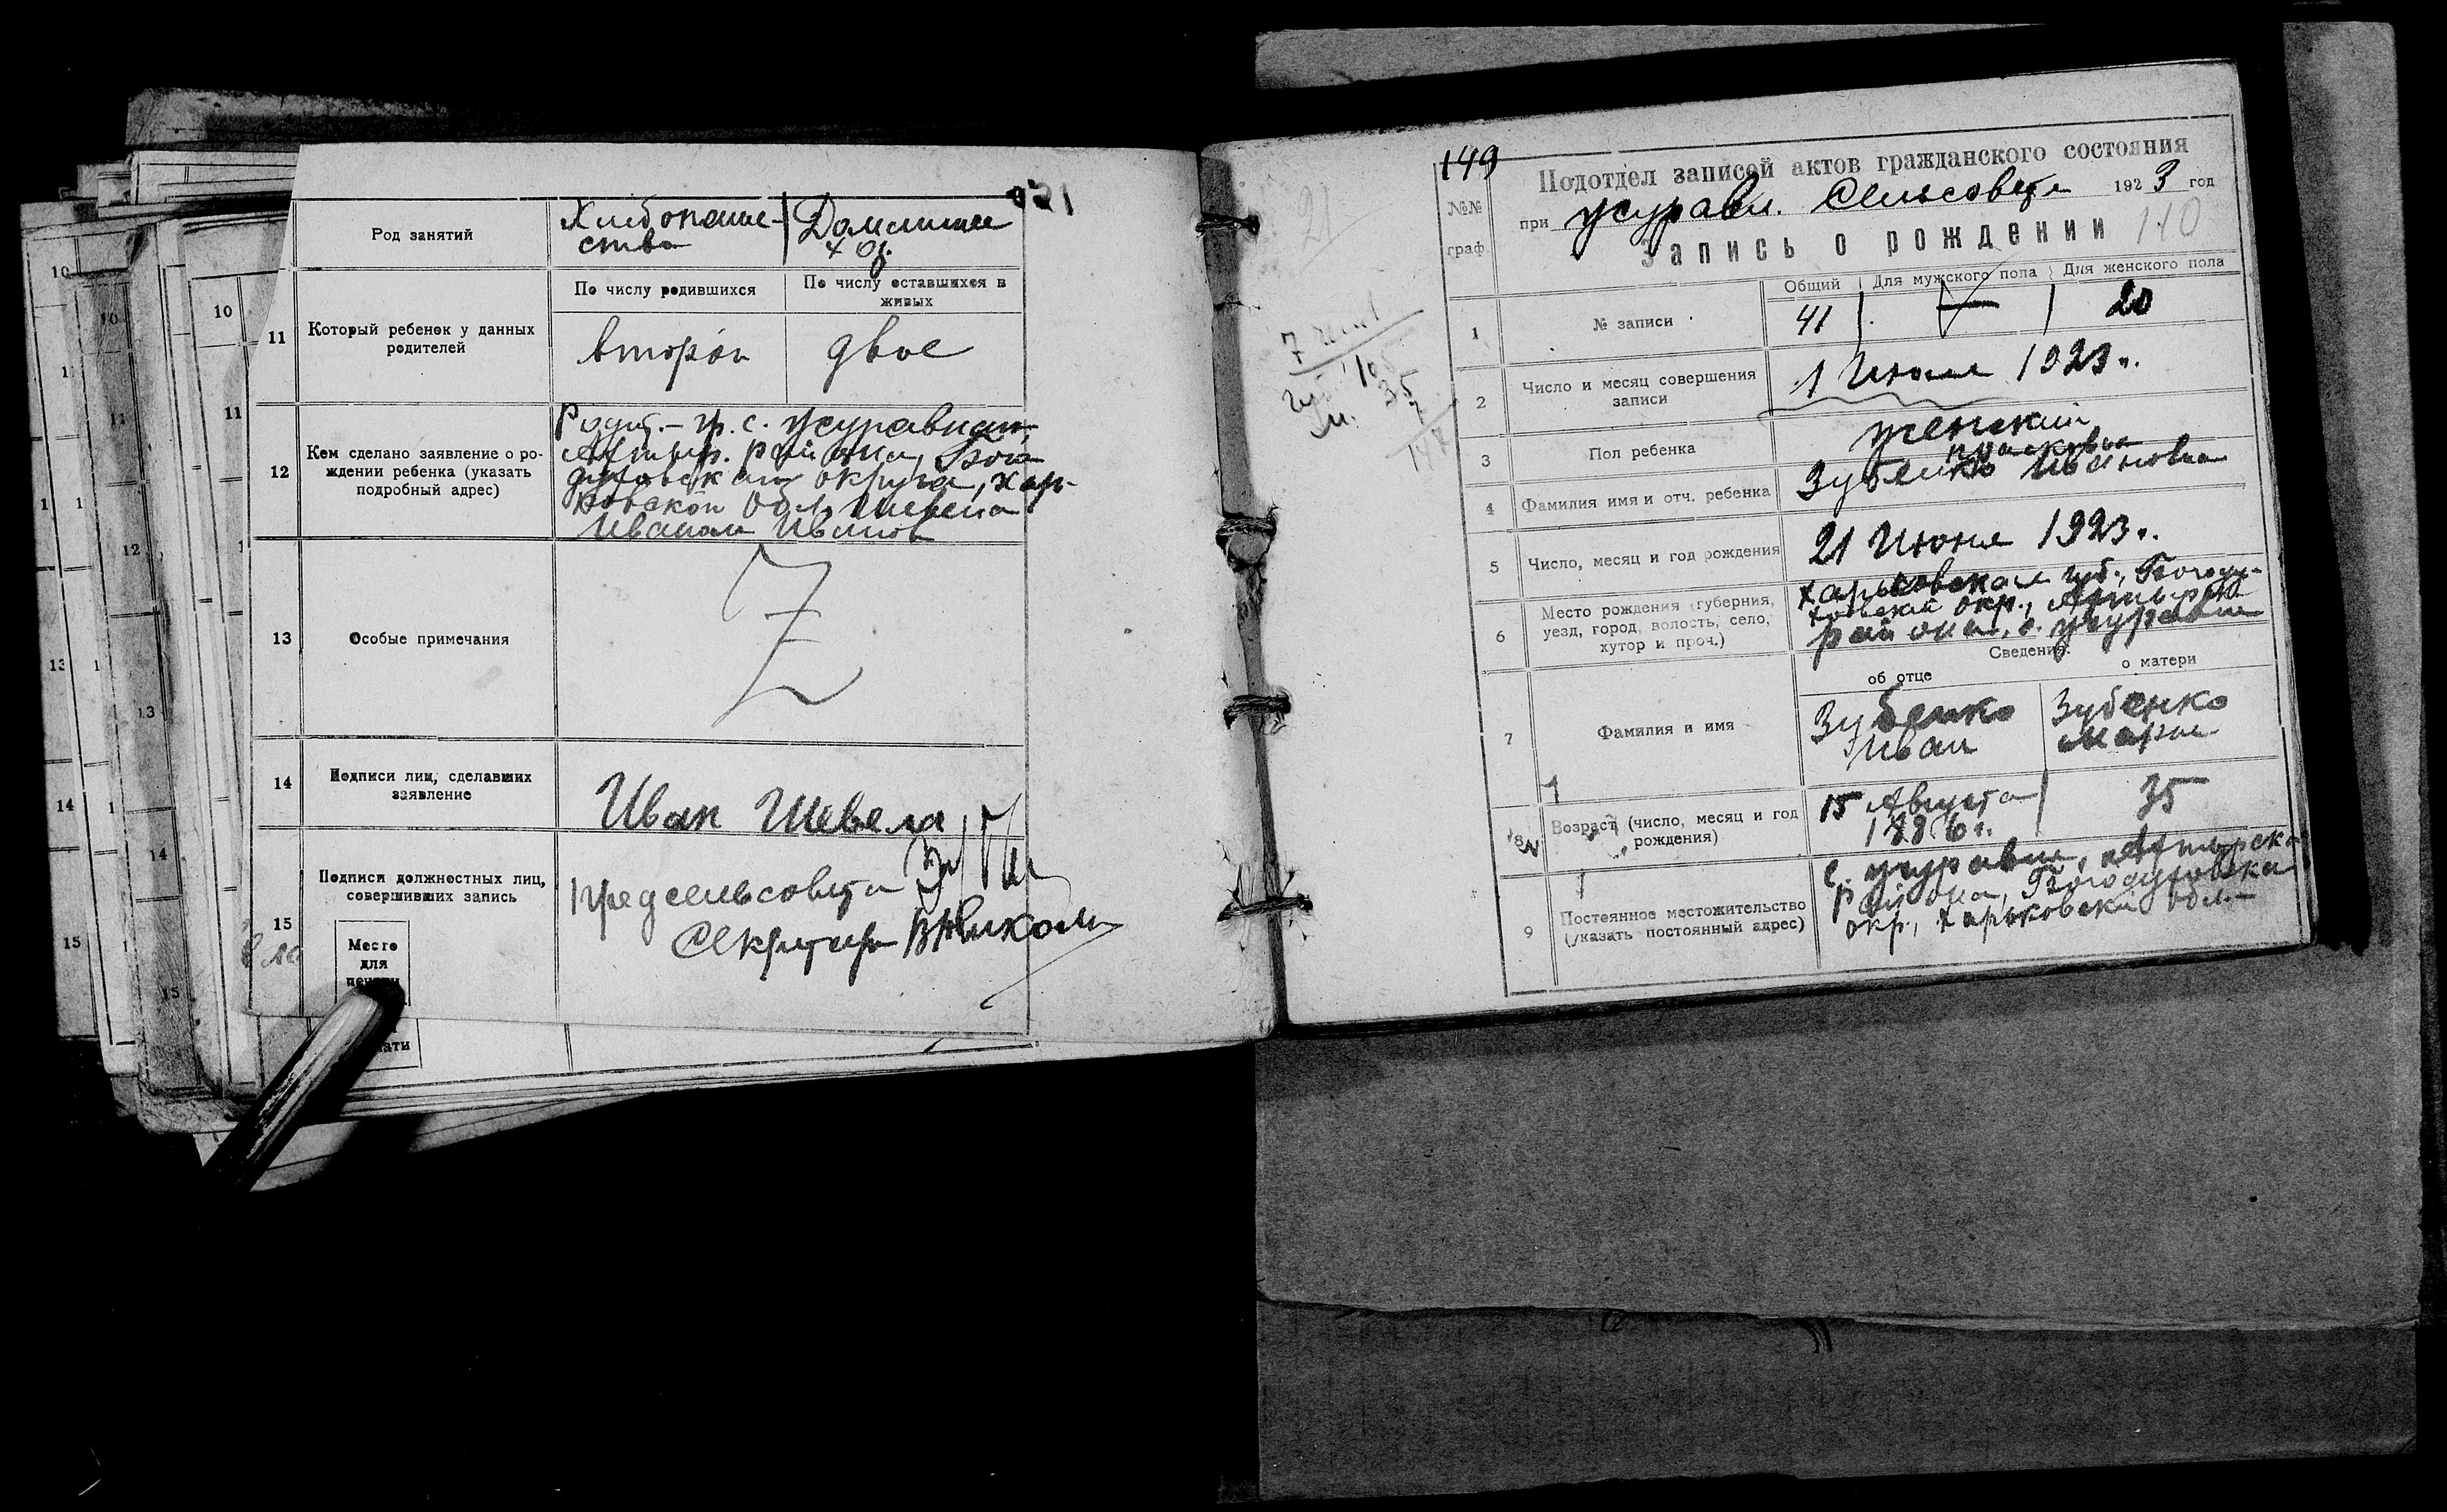 Род занятий
Хлебопаше- Домашнее
ство хоз.
11
Который ребенок у данных
родителей
По числу родившихся
По числу оставшихся в
живых
второй
двое
12
Кем сделано заявление о ро-
ждении ребенка (указать
подробный адрес)
гр. с.
района, Бого
округа, Харь-
ковской Обл. Шевела
Иваном
13
Особые примечания
Z
14
Подписи лиц, сделавших
заявление
Иван Шевела
15
Подписи должностных лиц,
совершивших запись
Место
для
печати
Предсельсовета
Секретарь
149
Подотдел записей актов гражданского состояния
при Сельсовете 1923 год
№№
граф
Запись о рождении
110
21
1
№ записи
Общий
Для мужского пола
Для женского пола
41 — 20
2
Число и месяц совершения
записи
1 Июля 1923 г.
3
Пол ребенка
женский
4
Фамилия имя и отч. ребенка
Прасковья
Зубенко Ивановна
5
Число, месяц и год рождения
21 Июня 1923 г.
6
Место рождения (губерния,
уезд, город, волость, село,
хутор и проч.)
Харьковская губ., Богоду-
ховский окр.,
района, с.
Сведения:
об отце
о матери
7
Фамилия и имя
Зубенко
Иван
Зубенко
Мария
8
Возраст (число, месяц и год
рождения)
15 Августа
1886 г.
35
9
Постоянное местожительство
(указать постоянный адрес)
с.
района, Богодуховска
окр., Харьковской Обл.